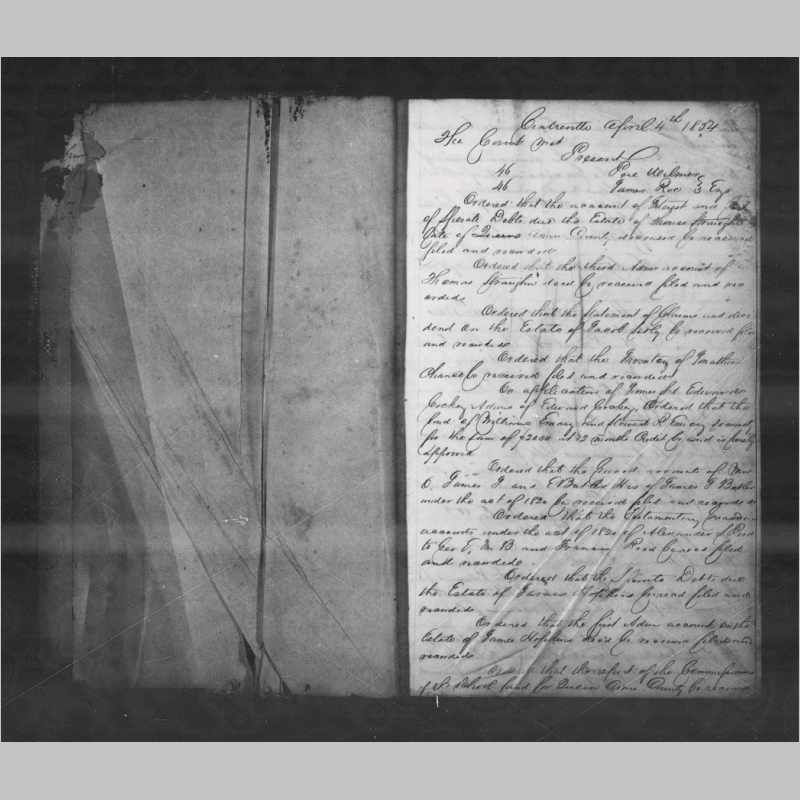 Centreville April 4th 1854
The Court met
Present
46 Pere Wilmer
46 James Roe } Esqs
Ordered that the account of
of Sperate Debts due the Estate of Thomas Straughn
late of Queen Anns County deceased be received
filed and recorded
Ordered that the third Admr account of
Thomas Straughn decd be received filed and rec
orded
Ordered that the Statement of Claims and divi
dend on the Estate of Jacob be received filed
and recorded
Ordered that the Inventory of Jonathan
Chance be received filed and recorded
On application of James and Edward
Cockey Admrs of Edward Cockey, Ordered that the
bond of Emory and Emory
for the sum of $2000 at 12 months Credit be and is hereby
approved
Ordered that the Guard accounts of Wm
O. James T. and E Butler Heirs of James T Butler
under the act of 1820 be received filed and recorded
Ordered that the Testamentary guardian
accounts under the act of 1820 of Alexander Reed
to Geo T. M B. and Reed be recd filed
and recorded
Ordered that the Sperate Debts due
the Estate of James Hopkins be recd filed and
recorded
Ordered that the first Admr account on the
Estate of James Hopkins decd be received filed and
recorded
Ordered that the report of the Commissioners
of the School fund for Queen Anns County be received